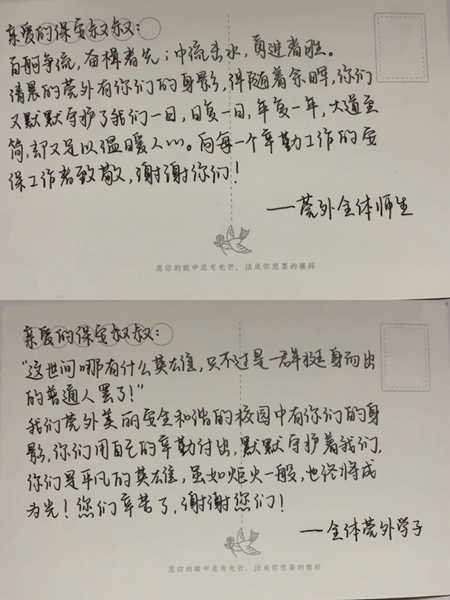 亲爱的保安叔叔：
百舸争流，奋楫者先；中流击水，勇进者胜。
清晨的莞外有你们的身影，伴随着余晖，你们
又默默守护了我们一日，日复一日，年复一年，大道至
简，却又足以温暖人心。向每一个辛勤工作的安
保工作者致敬，谢谢你们！
——莞外全体师生
愿你的眼中总有光芒，活成你想要的模样
亲爱的保安叔叔：
“这世间哪有什么英雄，只不过是一群挺身而出
的普通人罢了！”
我们莞外美丽安全和谐的校园中有你们的身
影，你们用自己的辛勤付出，默默守护着我们，
你们是平凡的英雄，虽如炬火一般，也终将成
为光！您们辛苦了，谢谢您们！
——全体莞外学子
愿你的眼中总有光芒，活成你想要的模样